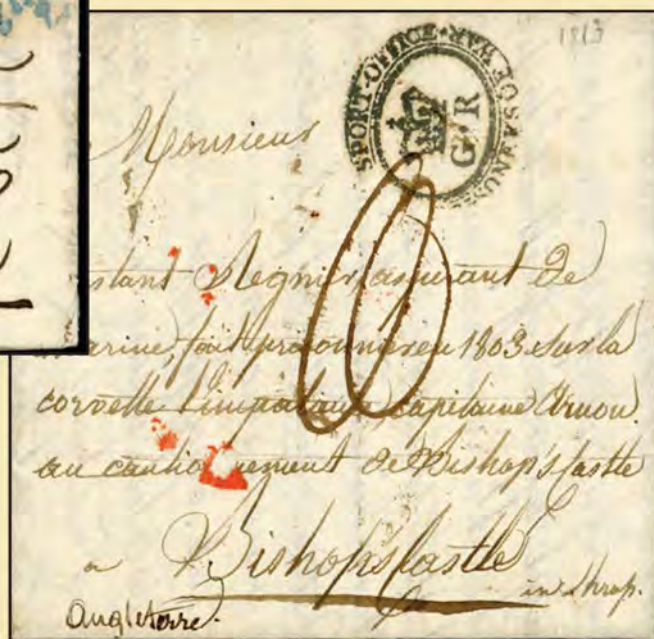 1813
SPORT-OFFICE * WAR
G·R
Monsieur
stant Regnier, aspirant de
marine, fait prisonnier en 1803 sur la
corvette l'impatient, capitaine Arnou.
au cautionnement de Bishop's Castle
a Bishop's Castle
in Shrop.
Angleterre.